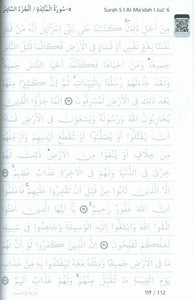 ٥-سُورَةُ المَائِدَة / الجُزْءُ السَّادِس Surah 5 | Al-Ma'idah | Juz' 6
مِنْ أَجْلِ ذَٰلِكَ كَتَبْنَا عَلَىٰ بَنِي إِسْرَائِيلَ أَنَّهُ مَنْ قَتَلَ
نَفْسًا بِغَيْرِ نَفْسٍ أَوْ فَسَادٍ فِي الْأَرْضِ فَكَأَنَّمَا قَتَلَ النَّاسَ
جَمِيعًا وَمَنْ أَحْيَاهَا فَكَأَنَّمَا أَحْيَا النَّاسَ جَمِيعًا
وَلَقَدْ جَاءَتْهُمْ رُسُلُنَا بِالْبَيِّنَاتِ ثُمَّ إِنَّ كَثِيرًا مِنْهُمْ
بَعْدَ ذَٰلِكَ فِي الْأَرْضِ لَمُسْرِفُونَ ٣٢ إِنَّمَا جَزَاءُ الَّذِينَ
يُحَارِبُونَ اللَّهَ وَرَسُولَهُ وَيَسْعَوْنَ فِي الْأَرْضِ فَسَادًا أَنْ
يُقَتَّلُوا أَوْ يُصَلَّبُوا أَوْ تُقَطَّعَ أَيْدِيهِمْ وَأَرْجُلُهُمْ
مِنْ خِلَافٍ أَوْ يُنْفَوْا مِنَ الْأَرْضِ ذَٰلِكَ لَهُمْ
خِزْيٌ فِي الدُّنْيَا وَلَهُمْ فِي الْآخِرَةِ عَذَابٌ عَظِيمٌ ٣٣ إِلَّا
الَّذِينَ تَابُوا مِنْ قَبْلِ أَنْ تَقْدِرُوا عَلَيْهِمْ فَاعْلَمُوا
أَنَّ اللَّهَ غَفُورٌ رَحِيمٌ ٣٤ يَا أَيُّهَا الَّذِينَ آمَنُوا
اتَّقُوا اللَّهَ وَابْتَغُوا إِلَيْهِ الْوَسِيلَةَ وَجَاهِدُوا فِي سَبِيلِهِ
لَعَلَّكُمْ تُفْلِحُونَ ٣٥ إِنَّ الَّذِينَ كَفَرُوا لَوْ أَنَّ لَهُمْ
مَا فِي الْأَرْضِ جَمِيعًا وَمِثْلَهُ مَعَهُ لِيَفْتَدُوا بِهِ مِنْ عَذَابِ
يَوْمِ الْقِيَامَةِ مَا تُقُبِّلَ مِنْهُمْ وَلَهُمْ عَذَابٌ أَلِيمٌ ٣٦